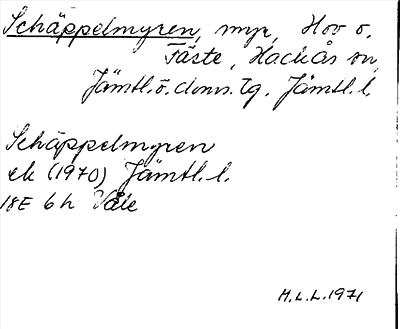 Schäppelmyren, myr, Hov o.
Fäste, Hackås sn,
Jämtl. ö. doms. tg. Jämtl. l.
Schäppelmyren
ek (1970) Jämtl. l.
18E 6h Våle
H.L.L. 1971